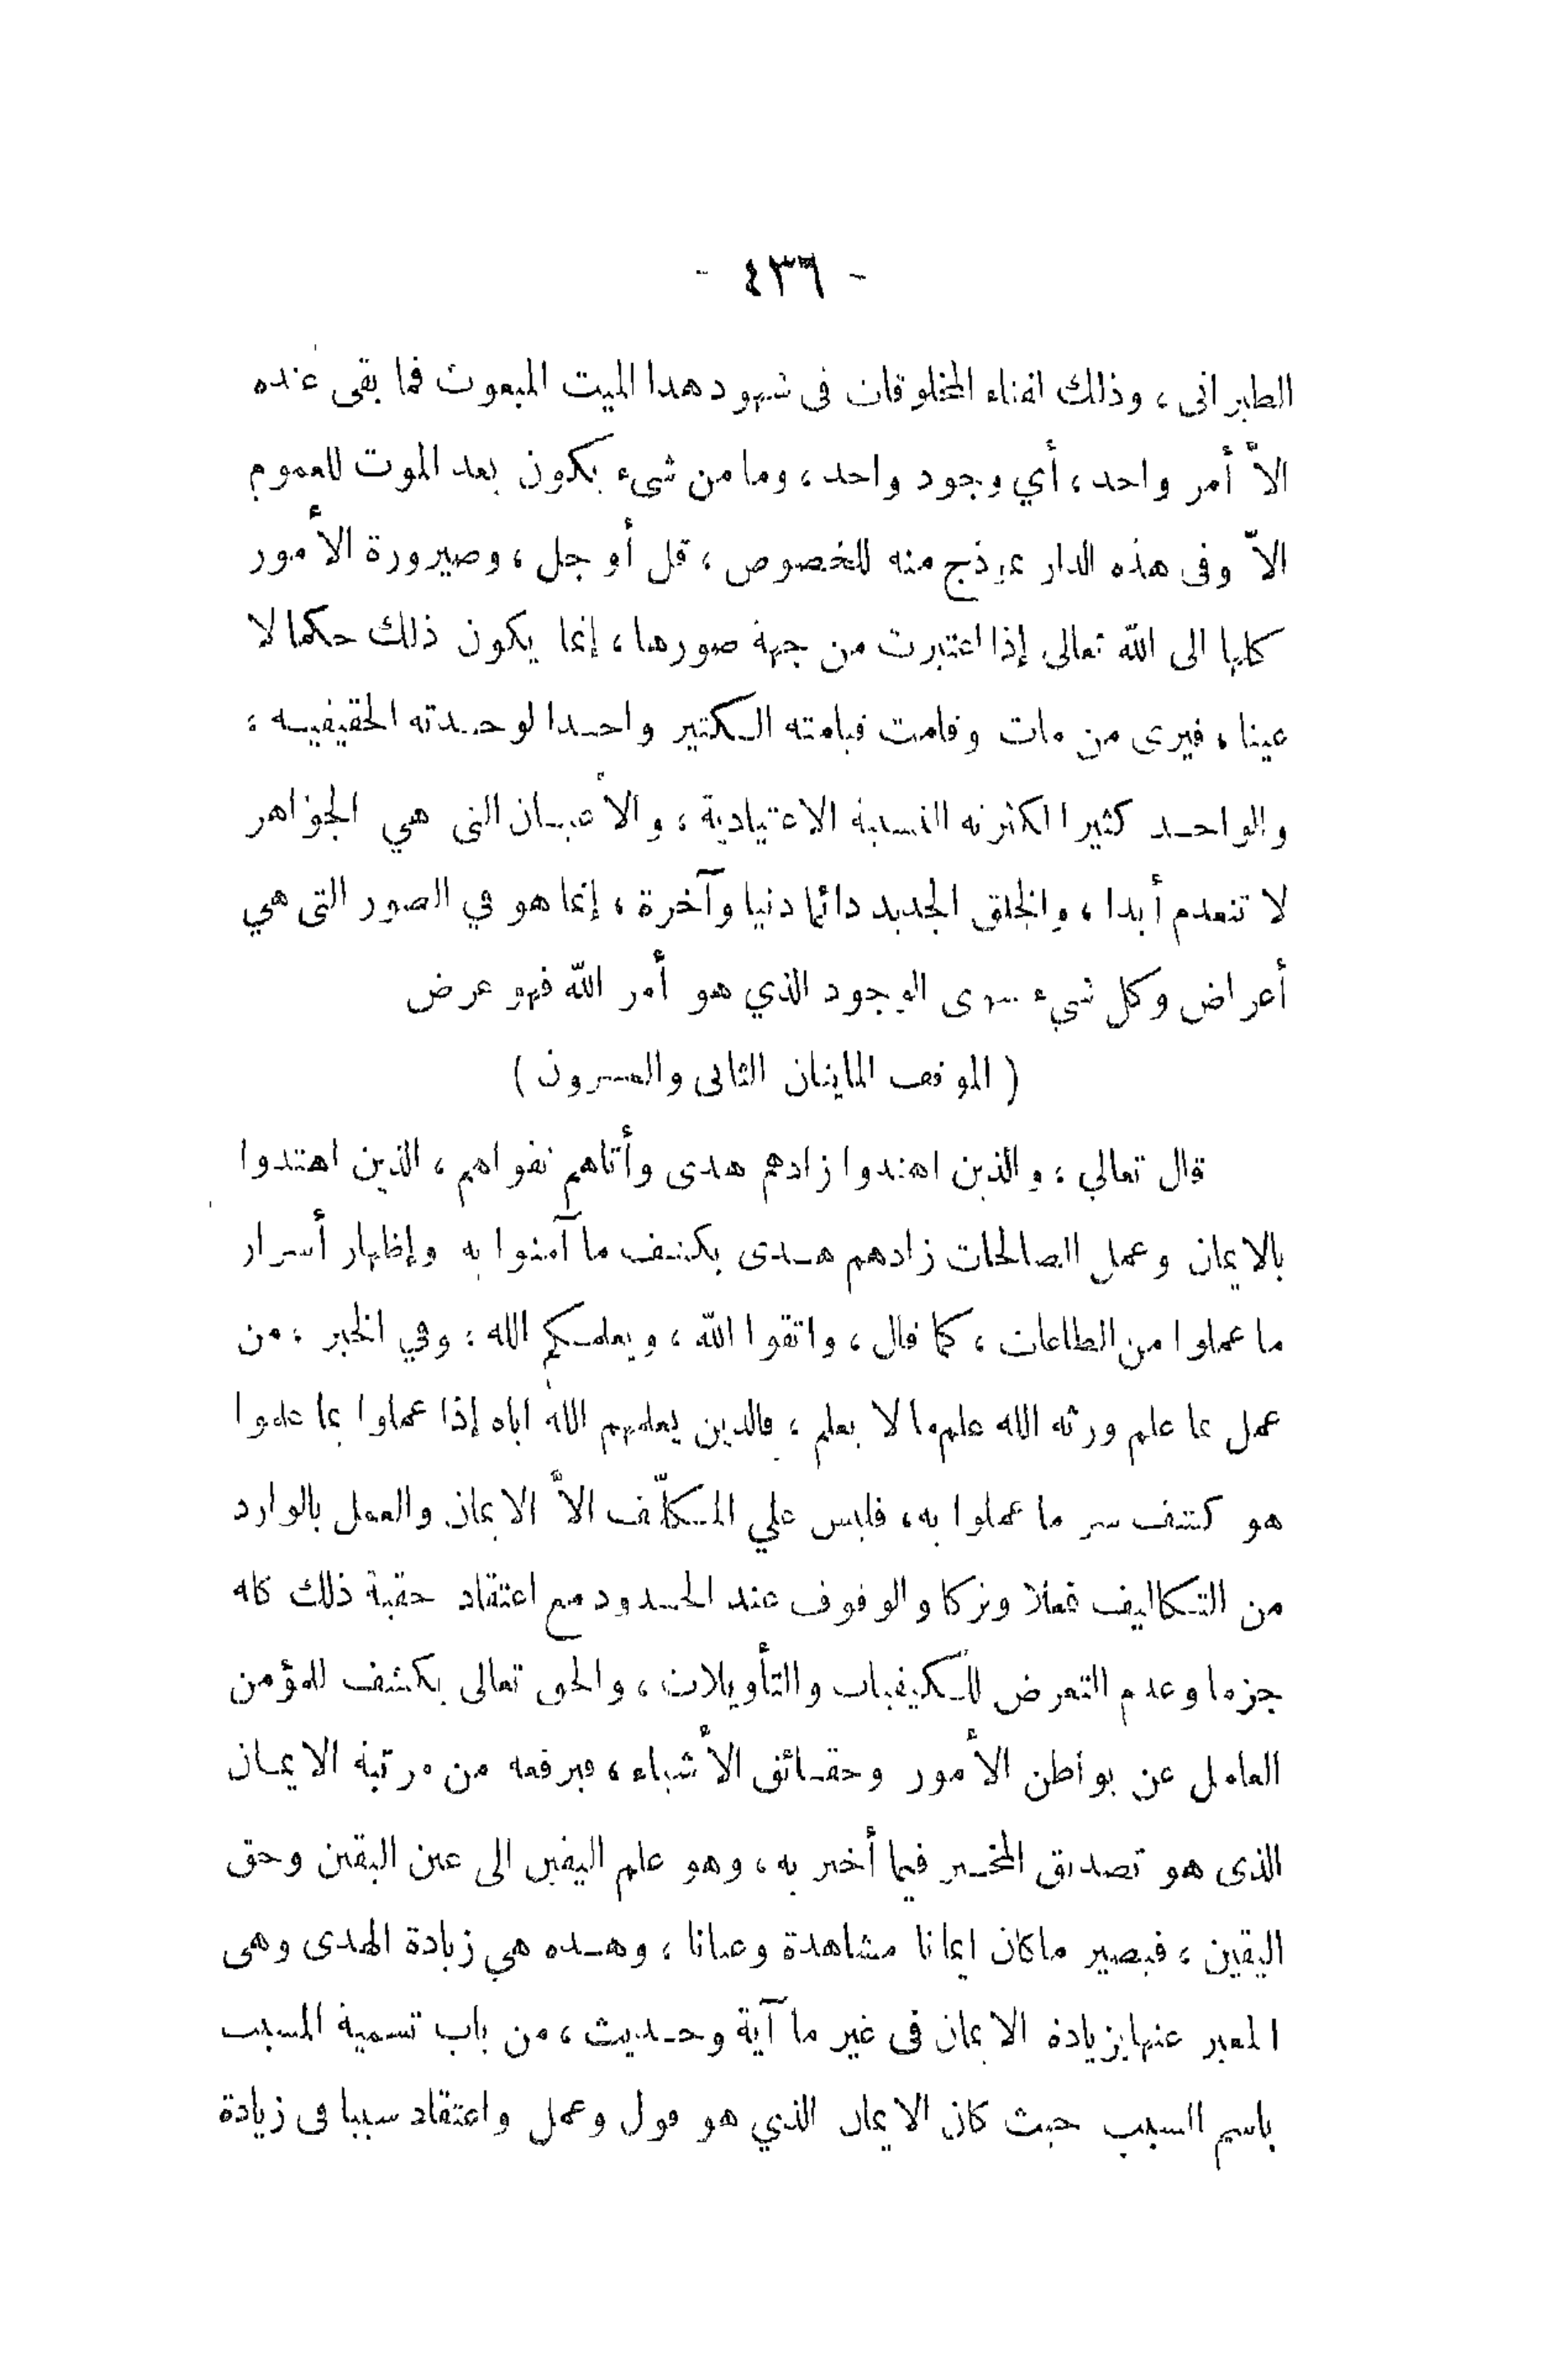 - ٤٣٦ -
الطبراني ، وذلك لفناء المخلوقات فى شهود هذا الميت المبعوث فما بقى عنده
الاّ أمر واحد ، أي وجود واحد ، وما من شىء يكون بعد الموت للعموم
الاّ وفى هذه الدار نموذج منه للخصوص ، قل أو جل ، وصيرورة الأمور
كلها الى الله تعالى إذا اعتبرت من جهة صورها ، إنما يكون ذلك حكما لا
عينا ، فيرى من مات وقامت قيامته الكثير واحدا لوحدته الحقيقيه ،
والواحد كثيرا لكثرته النسبية الاعتيادية ، والأعيان التى هي الجواهر
لا تنعدم أبدا ، والخلق الجديد دائما دنيا وآخرة ، إنما هو في الصور التى هي
أعراض وكل شيء سوى الوجود الذي هو أمر الله فهو عرض
( الموقف المايتان الثانى والعشرون )
قال تعالي ، والذين اهتدوا زادهم هدى وأتاهم تقواهم ، الذين اهتدوا
بالايمان وعمل الصالحات زادهم هدى بكشف ما آمنوا به وإظهار أسرار
ما عملوا من الطاعات ، كما قال ، واتقوا الله ، ويعلمكم الله ، وفي الخبر ، من
عمل بما علم ورثه الله علم ما لا يعلم ، فالذين يعلمهم الله اياه إذا عملوا بما علموا
هو كشف سر ما عملوا به ، فليس علي المكلّف الاّ الايمان والعمل بالوارد
من التكاليف فعلا وتركا والوقوف عند الحدود مع اعتقاد حقية ذلك كله
جزما وعدم التعرض للكيفيات والتأويلات ، والحق تعالى يكشف للمؤمن
العامل عن بواطن الأمور وحقائق الأشياء ، فيرفعه من مرتبة الايمان
الذى هو تصديق المخبر فيما أخبر به ، وهو علم اليقين الى عين اليقين وحق
اليقين ، فيصير ما كان ايمانا مشاهدة وعيانا ، وهذه هي زيادة الهدى وهى
المعبر عنها بزيادة الايمان فى غير ما آية وحديث ، من باب تسمية المسبب
باسم السبب حيث كان الايمان الذي هو قول وعمل واعتقاد سببا فى زيادة